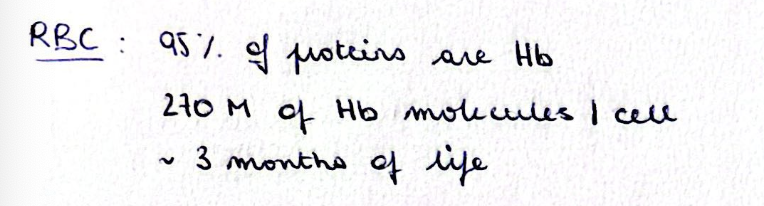 RBC : 95% of proteins are Hb
270 M of Hb molecules / cell
~ 3 months of life